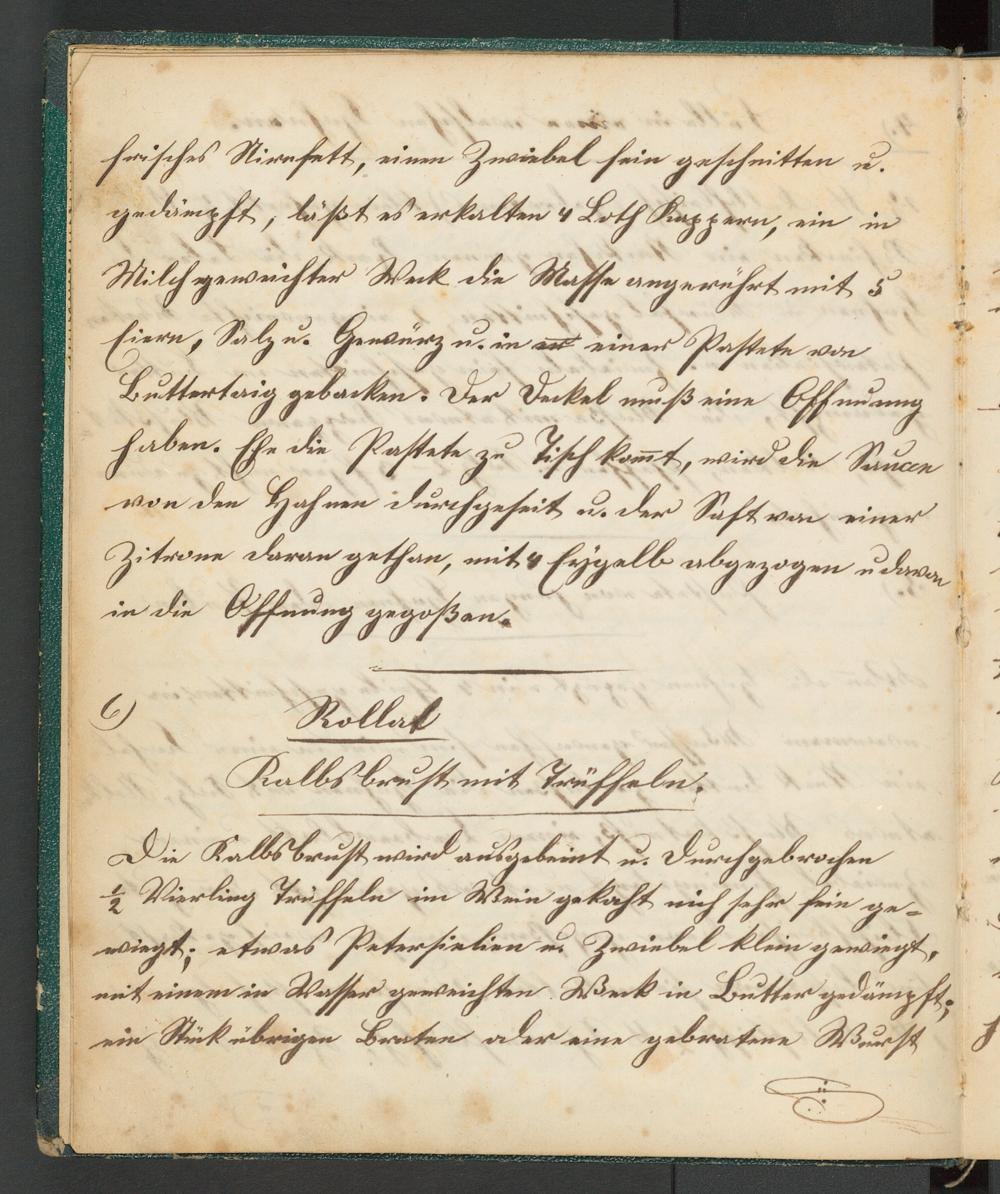 frisches Nirnfett, einen Zwiebel fein geschnitten u.
gedämpft, läßt es erkalten 4 Loth Kappern, ein in
Milch geweichter Weck die Masse angerührt mit 5
Eiern, Salz u. Gewürz u. in einer Pastete von
Buttertaig gebacken. Der Deckel muß eine Öffnung
haben. Ehe die Pastete zu Tisch kom̅t, wird die Saucen
von den Hahnen durchgeseit u. der Saft von einer
Zitrone daran gethan, mit 4 Eygelb abgezogen u davon
in die Öffnung gegoßen.
6)
Rollat
Kalbsbrust mit Trüffeln.
Die Kalbsbrust wird ausgebeint u. durchgebrochen
½ Vierling Trüffeln im Wein gekocht nich sehr fein ge-
wiegt; etwas Petersielien u. Zwiebel klein gewiegt,
mit einem in Wasser geweichten Weck in Butter gedämpft;
ein Stük übrigen Braten oder eine gebratene Wurst